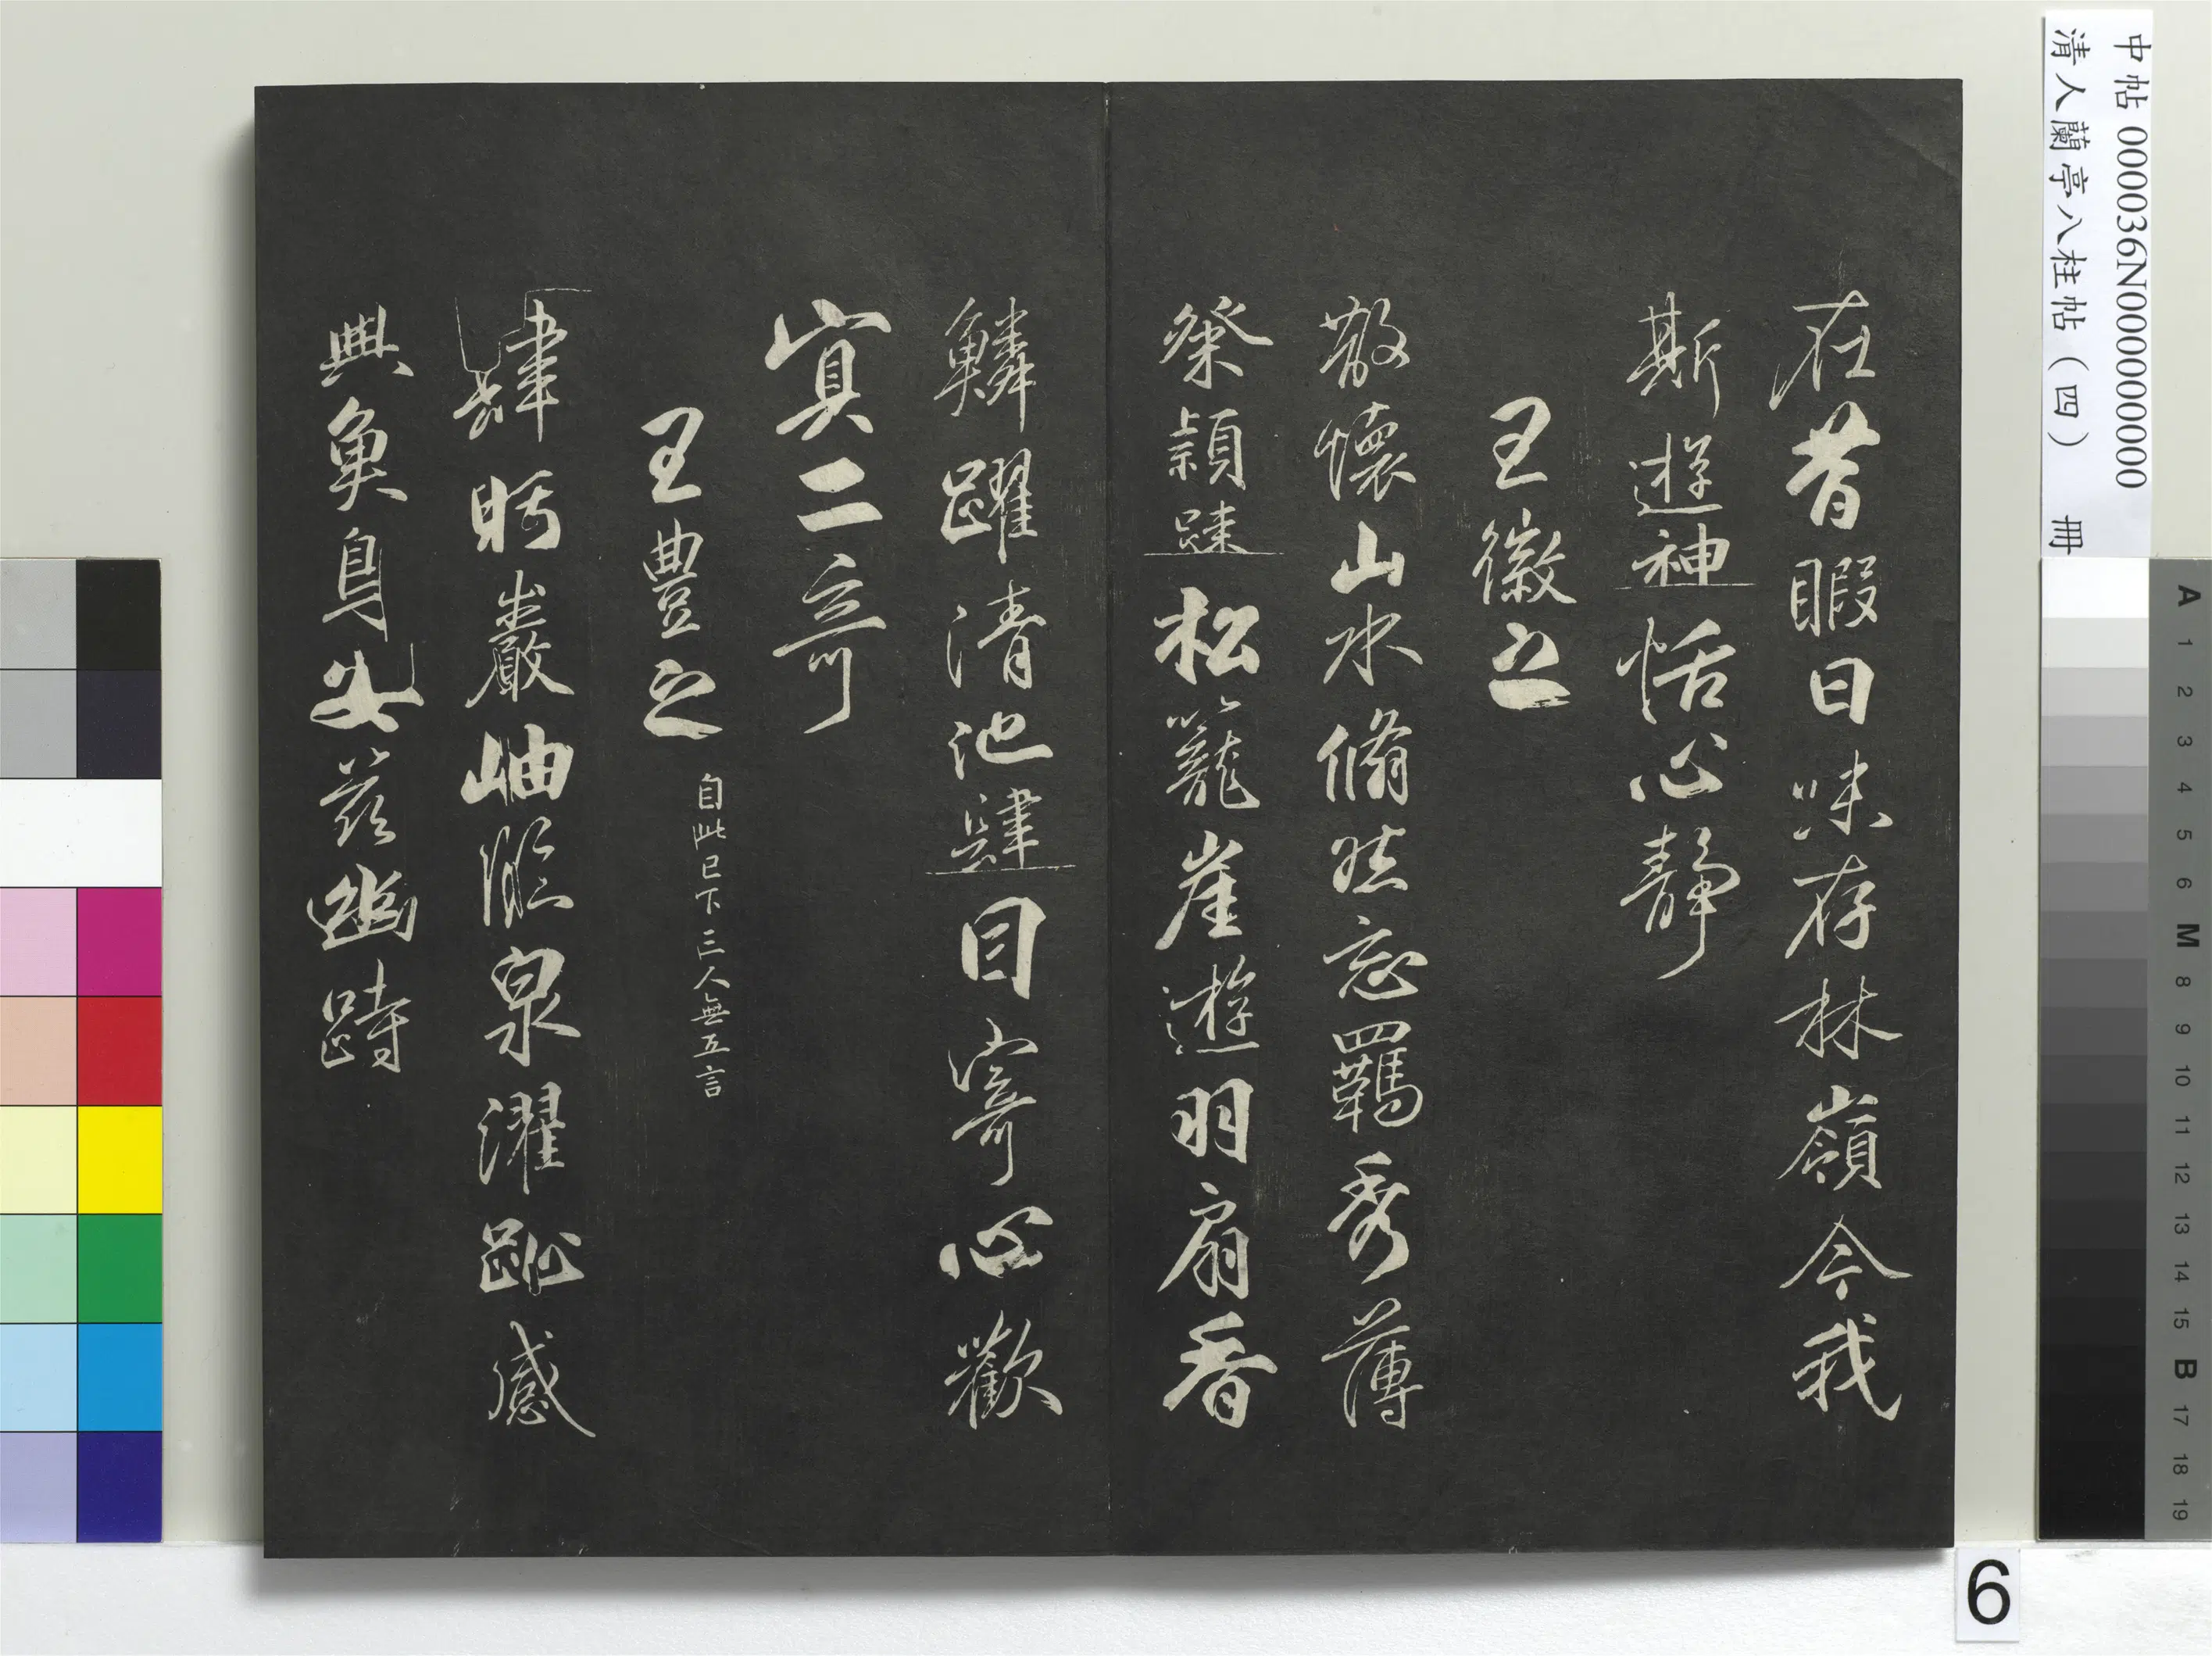 中帖 000036N000000000
清人蘭亭八柱帖（四） 冊
在昔暇日味存林嶺今我
斯遊神怡心靜
王徽之
散懷山水翛然忘羈秀薄
粲穎疎松籠崖遊羽扇香
鱗躍清池肆目寄心歡
寘二奇
王豊之
自此已下三人無五言
肆眄巖岫臨泉濯趾感
興魚鳥安茲幽跱
A 1 2 3 4 5 6 M 8 9 10 11 12 13 14 15 B 17 18 19
6